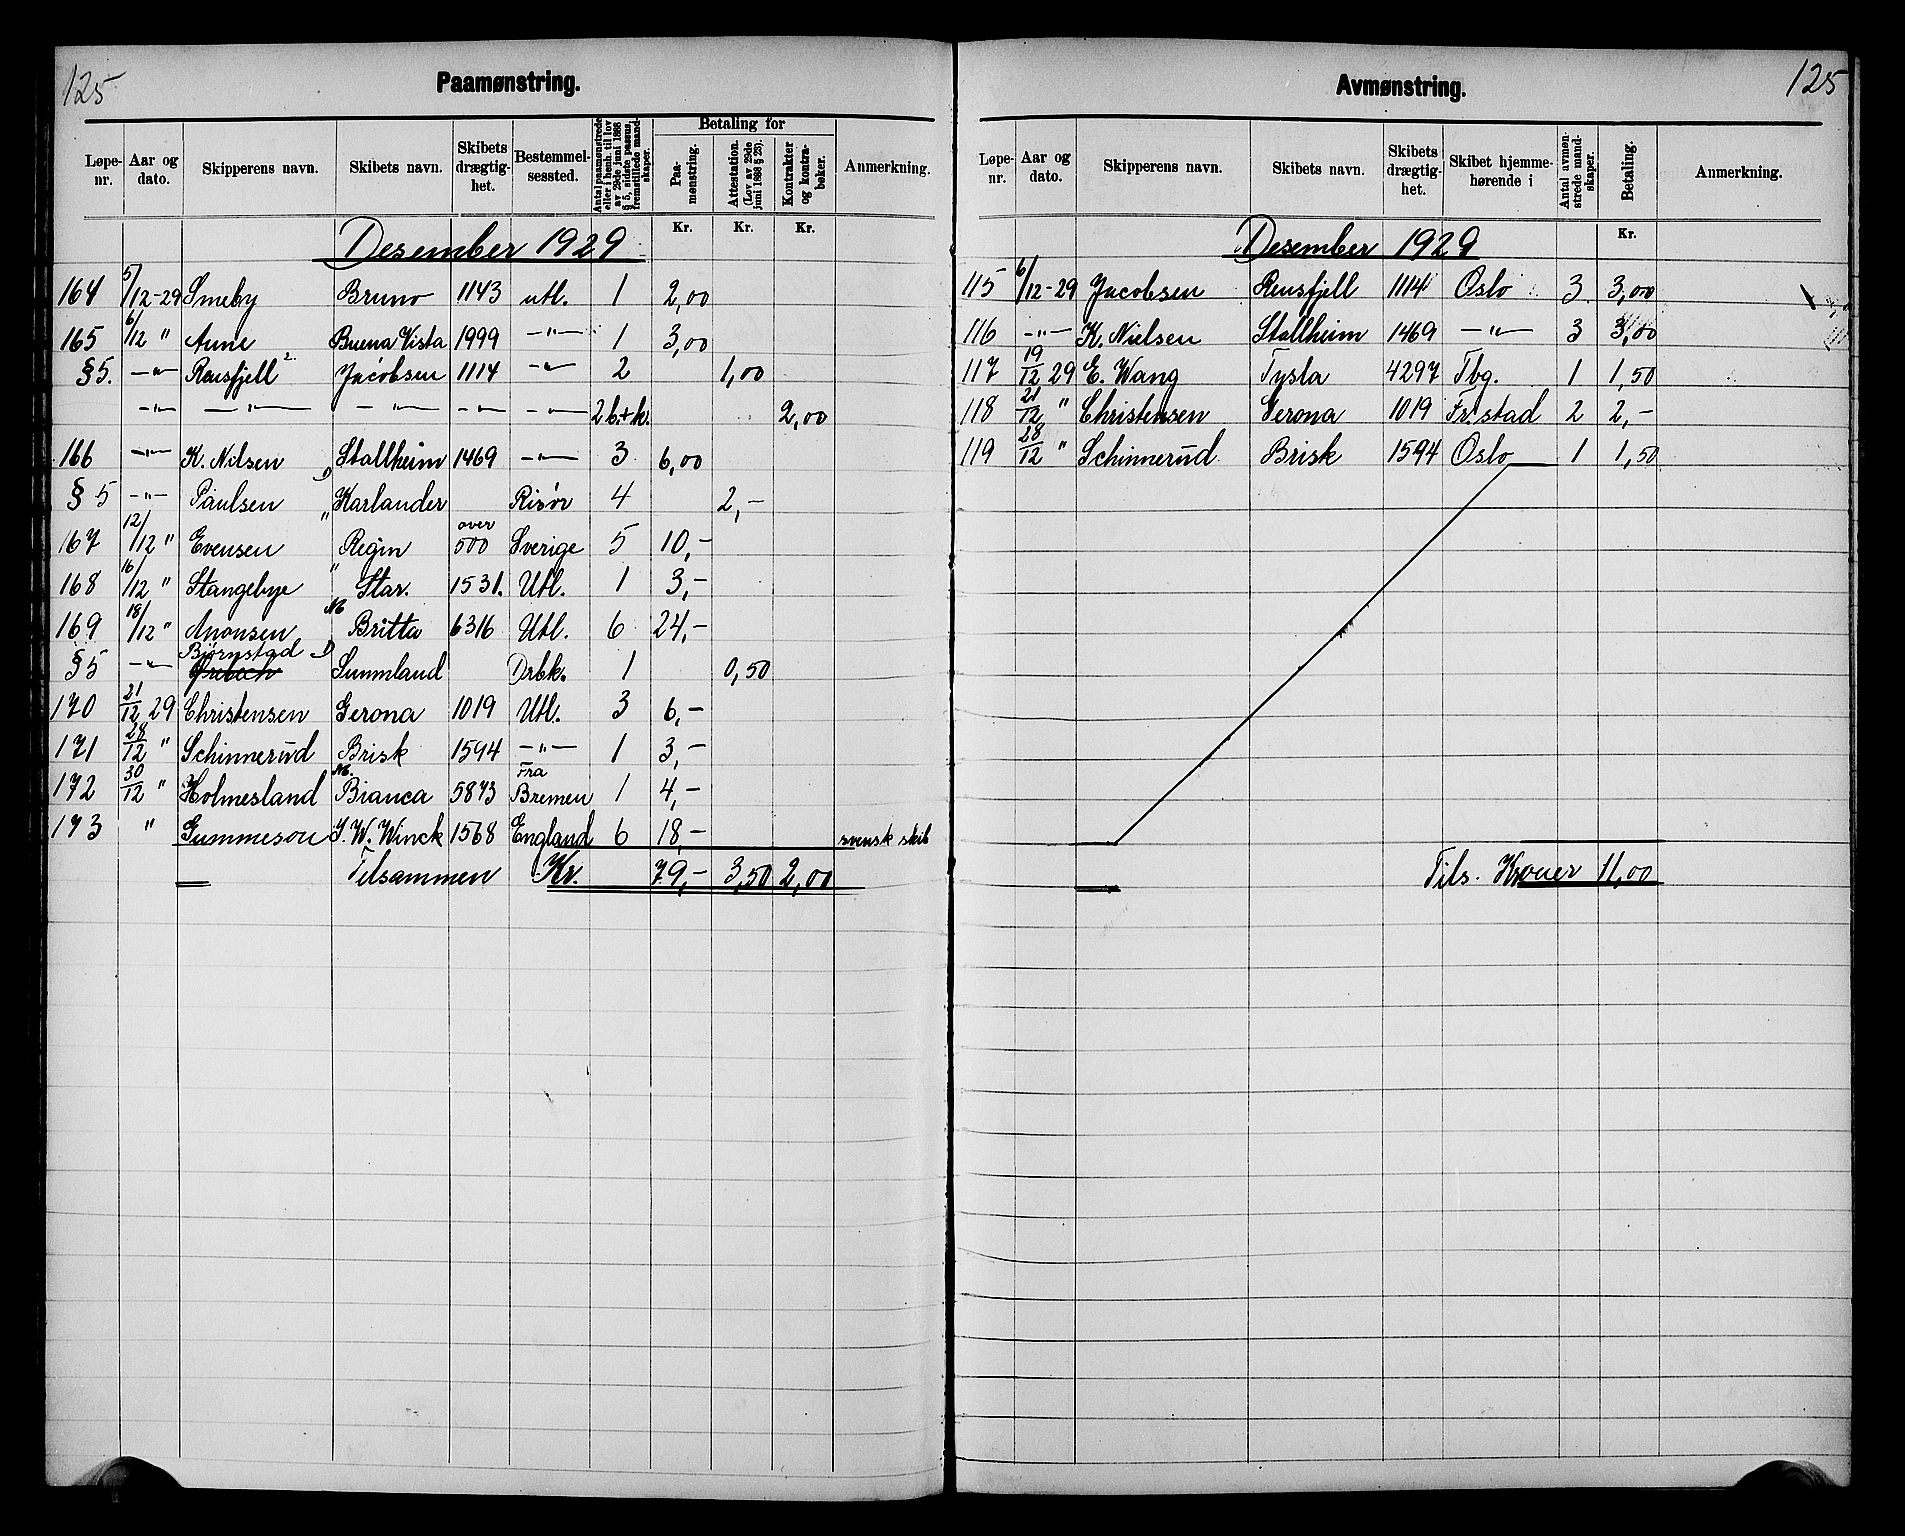 125
Paamønstring.
Løpe-nr. Aar og dato. Skipperens navn. Skibets navn. Skibets drægtig-het. Bestemmel-sessted. Antal paamønstrede eller i henh. til lov av 29de juni 1888 § 5, sidste passus, fremstillede mand-skaper. Betaling for Paa-mønstring. Attestation. (Lov av 29de juni 1888 § 25). Kontrakter og kontra-bøker. Anmerkning.
Kr. Kr. Kr.
Desember 1929
164 5/12-29 Smeby Bruno 1143 utl. 1 2,00
165 6/12 " Aune Buena Vista 1999 -"- 1 3,00
§5. -"- Rensfjell 2 Jacobsen 1114 -"- 2 1,00
-"- -"- -"- -"- -"- 2 b.+k. 2,00
166 -"- K. Nilsen Stallheim 1469 -"- 3 6,00
§5 -"- Paulsen D Karlander Risør 4 2,-
167 12/12 " Evensen " Regin over 500 Sverige 5 10,-
168 16/12 " Stangebye " Star. 1531. Utl. 1 3,-
169 18/12 " Anonsen M Britta 6316 Utl. 6 24,-
§5 -"- Bjørnstad D Sunmland Drbk. 1 0,50
170 21/12 29 Christensen Gerona 1019 Utl. 3 6,-
171 28/12 " Schinnerud Brisk 1594 -"- 1 3,-
172 30/12 " Holmesland M. Bianca 5873 Fra Bremen 1 4,-
173 " Gummeson I. W. Winck 1568 England 6 18,- svensk skib
Tilsammen Kr. 79,- 3,50 2,00
125
Avmønstring.
Løpe-nr. Aar og dato. Skipperens navn. Skibets navn. Skibets drægtig-het. Skibet hjemme-hørende i Antal avmøn-strede mand-skaper. Betaling. Anmerkning.
Kr.
Desember 1929
115 6/12-29 Jacobsen Rensfjell 1114 Oslo 3 3,00
116 -"- K. Nielsen Stallheim 1469 -"- 3 3,00
117 19/12 29 E. Wang Tysla 4297 Tbg. 1 1,50
118 21/12 " Christensen Gerona 1019 Fr.stad 2 2,-
119 28/12 " Schinnerud Brisk 1594 Oslo 1 1,50
Tils. Kroner 11,00